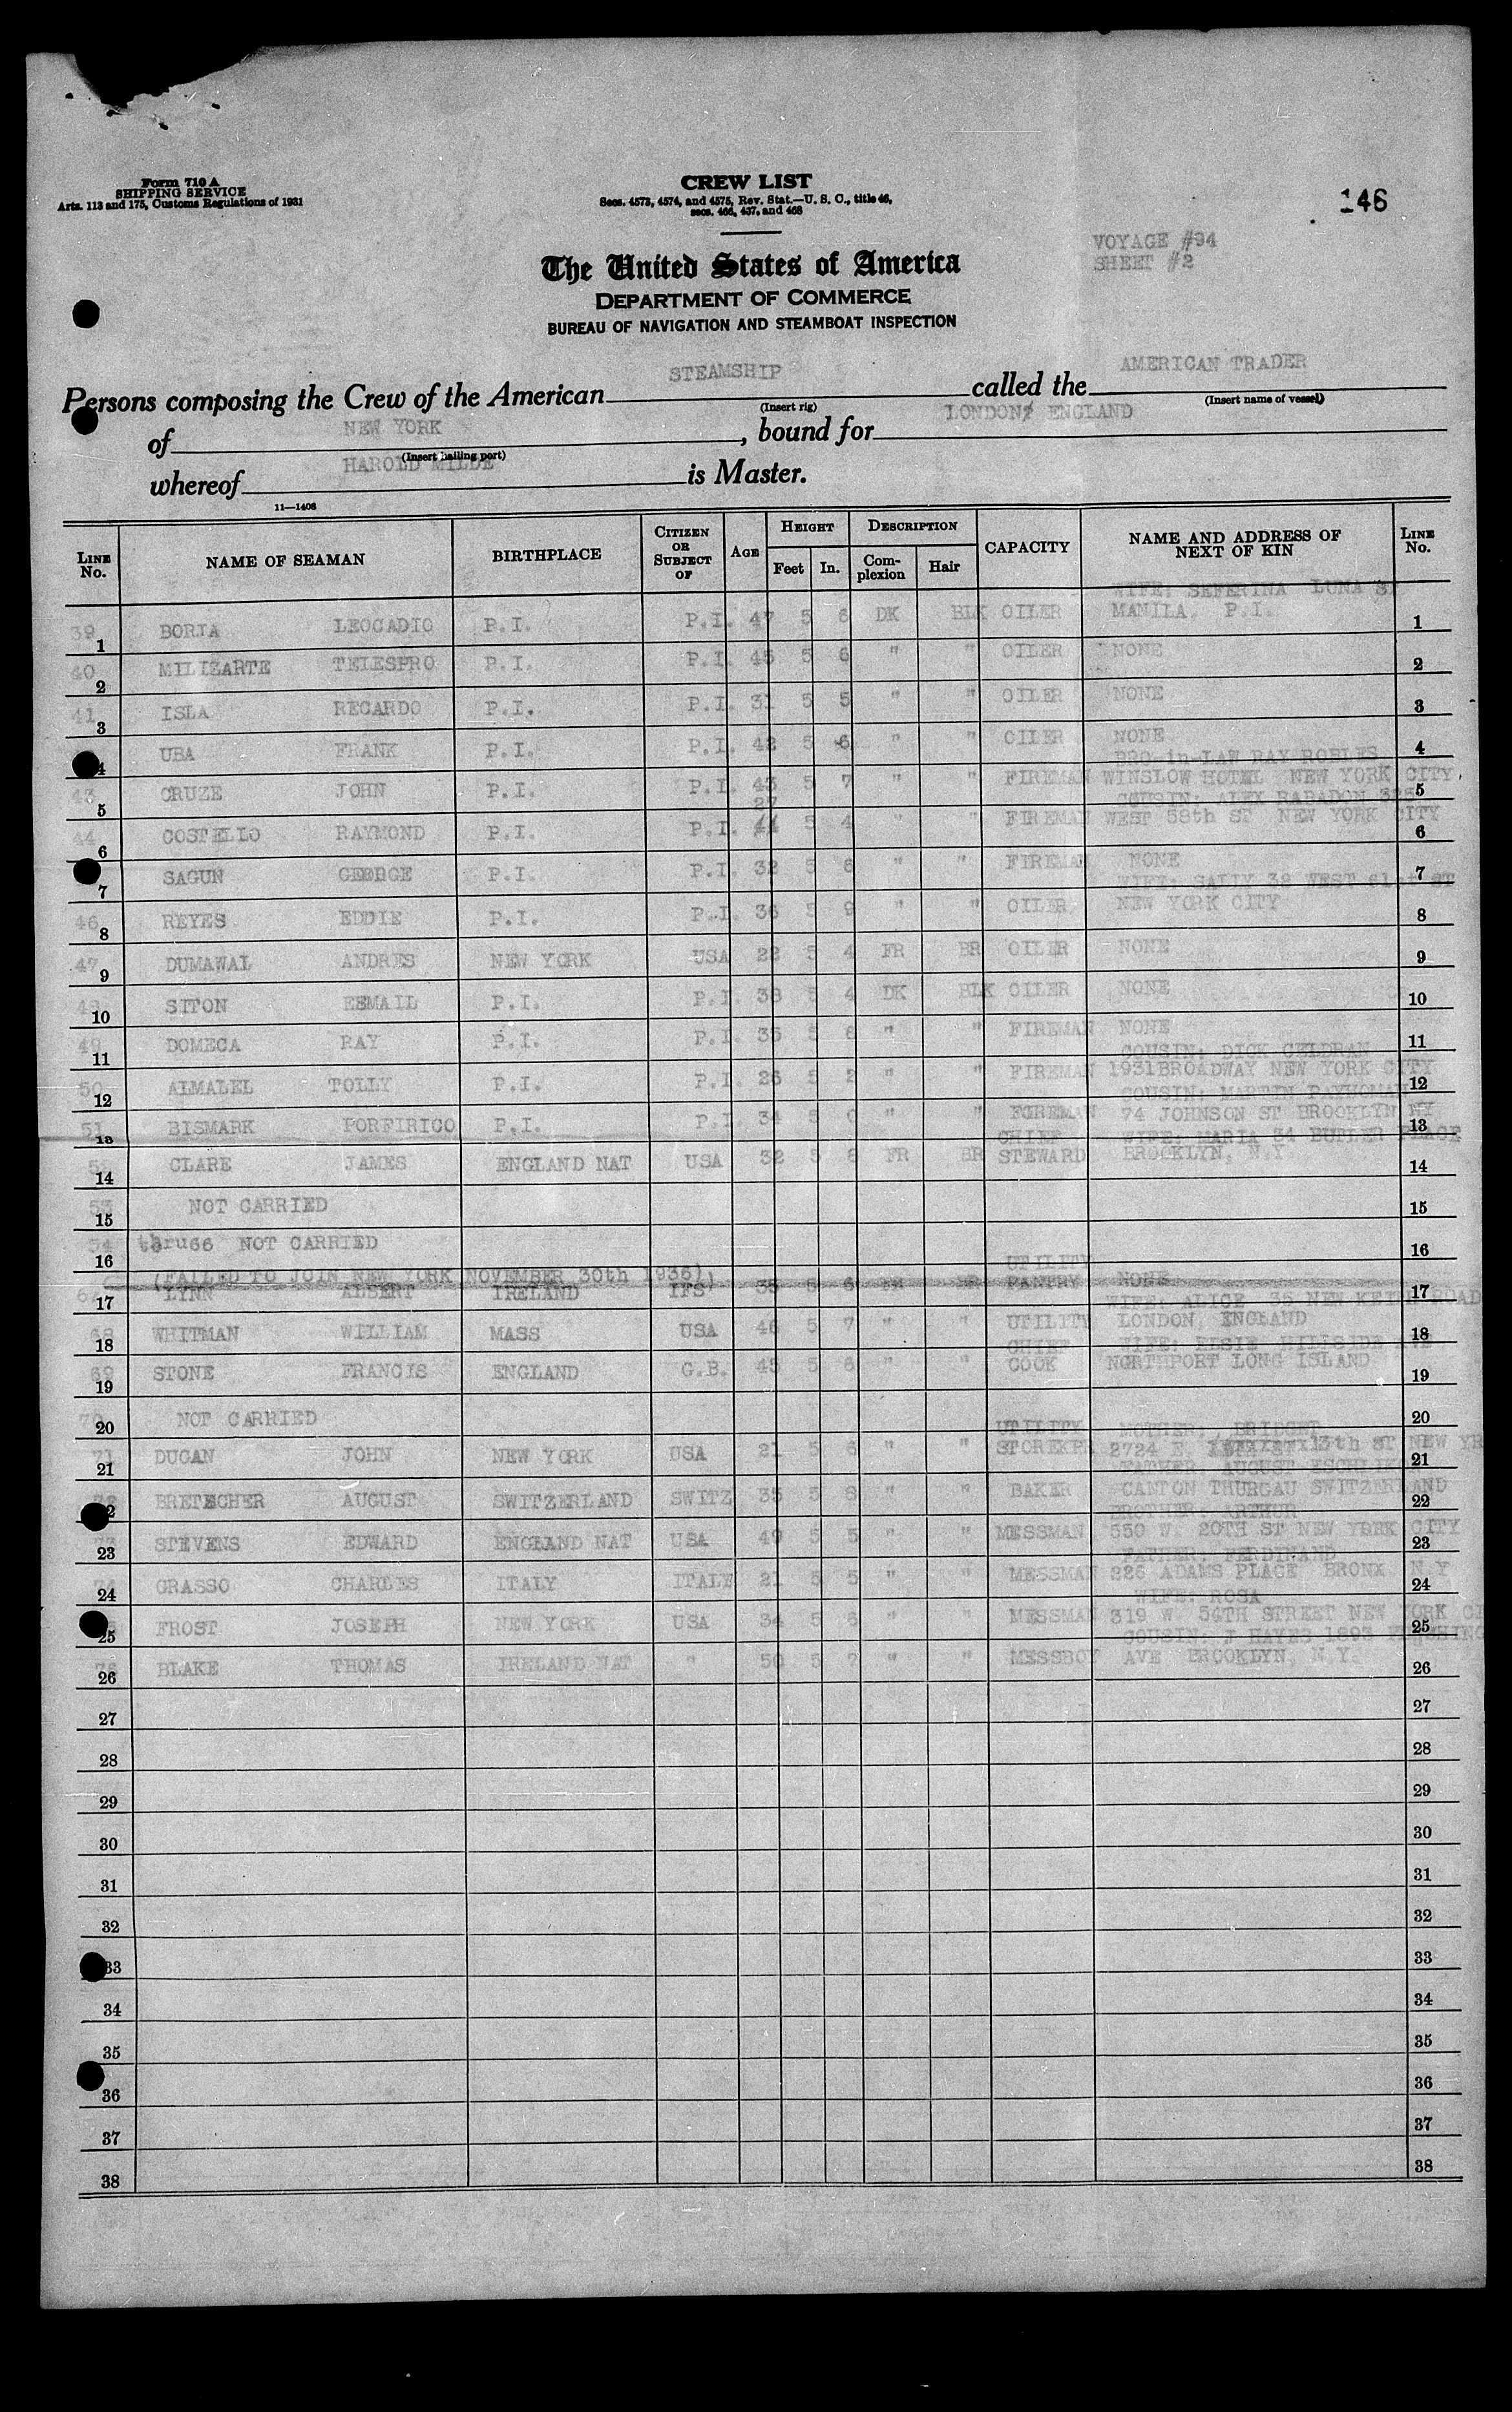 Form 710 A
SHIPPING SERVICE
Arts. 113 and 175, Customs Regulations of 1931
CREW LIST
Secs. 4573, 4574, and 4575, Rev. Stat.—U. S. C., title 46,
secs. 466, 437, and 468
146
VOYAGE #94
SHEET #2
The United States of America
DEPARTMENT OF COMMERCE
BUREAU OF NAVIGATION AND STEAMBOAT INSPECTION
Persons composing the Crew of the American STEAMSHIP called the AMERICAN TRADER
(Insert rig) (Insert name of vessel)
of NEW YORK, bound for LONDON, ENGLAND
(Insert hailing port)
whereof HAROLD MILDE is Master.
11—1408
LINE No. NAME OF SEAMAN BIRTHPLACE CITIZEN OR SUBJECT OF AGE HEIGHT Feet In. DESCRIPTION Complexion Hair CAPACITY NAME AND ADDRESS OF NEXT OF KIN LINE No.
WIFE: SEFERINA LUNA ST
39 1 BORJA LEOCADIO P.I. P.I. 47 5 6 DK BLK OILER MANILA, P.I. 1
40 2 MILIZARTE TELESPRO P.I. P.I. 45 5 6 " " OILER NONE 2
41 3 ISLA RECARDO P.I. P.I. 31 5 5 " " OILER NONE 3
4 UBA FRANK P.I. P.I. 42 5 6 " " OILER NONE 4
BRO-in-LAW RAY ROBLES
43 5 CRUZE JOHN P.I. P.I. 43 5 7 " " FIREMAN WINSLOW HOTEL NEW YORK CITY, 5
27 COUSIN: ALEX RABADON 325
44 6 COSTELLO RAYMOND P.I. P.I. 44 5 4 " " FIREMAN WEST 58th ST NEW YORK CITY 6
7 SAGUN GEORGE P.I. P.I. 32 5 6 " " FIREMAN NONE 7
WIFE: SALLY 32 WEST 61st ST
46 8 REYES EDDIE P.I. P.I. 36 5 9 " " OILER NEW YORK CITY 8
47 9 DUMAWAL ANDRES NEW YORK USA 22 5 4 FR BR OILER NONE 9
48 10 SITON ESMAIL P.I. P.I. 38 5 4 DK BLK OILER NONE 10
49 11 DOMECA RAY P.I. P.I. 35 5 6 " " FIREMAN NONE 11
COUSIN: DICK CELDRAN
50 12 ALMALEL TOLLY P.I. P.I. 26 5 2 " " FIREMAN 1931BROADWAY NEW YORK CITY 12
COUSIN: MARTIN
51 13 BISMARK PORFIRICO P.I. P.I. 34 5 0 " " FOREMAN 74 JOHNSON ST BROOKLYN NY 13
CHIEF WIFE: MARIA 34 BUTLER PLACE
52 14 CLARE JAMES ENGLAND NAT USA 32 5 6 FR BR STEWARD BROOKLYN, N.Y. 14
53 15 NOT CARRIED 15
54 16 thru66 NOT CARRIED 16
(FAILED TO JOIN NEW YORK NOVEMBER 30th 1936) UTILITY
67 17 LYNN ALBERT IRELAND IFS 35 5 6 BR PANTRY NONE 17
WIFE: ALICE 35 NEW ROAD
68 18 WHITMAN WILLIAM MASS USA 46 5 7 " " UTILITY LONDON, ENGLAND 18
CHIEF WIFE: ELSIE HILLSIDE AVE
69 19 STONE FRANCIS ENGLAND G.B. 45 5 8 " " COOK NORTHPORT LONG ISLAND 19
70 20 NOT CARRIED 20
UTILITY MOTHER: BRIDGET
71 21 DUGAN JOHN NEW YORK USA 21 5 6 " " STOREKPR 2724 E. 13th ST NEW YR 21
FATHER: AUGUST
72 22 BRETSCHER AUGUST SWITZERLAND SWITZ 35 5 8 " " BAKER CANTON THURGAU SWITZERLAND 22
BROTHER: ARTHUR
73 23 STEVENS EDWARD ENGLAND NAT USA 49 5 5 " " MESSMAN 550 W. 20TH ST NEW YORK CITY 23
FATHER: FERDINAND
74 24 GRASSO CHARLES ITALY ITALY 21 5 5 " " MESSMAN 226 ADAMS PLACE BRONX N.Y 24
WIFE: ROSA
25 FROST JOSEPH NEW YORK USA 34 5 6 " " MESSMAN 319 W. 54TH STREET NEW YORK CI 25
COUSIN: J HAYES 1893 FLUSHING
76 26 BLAKE THOMAS IRELAND NAT " 50 5 7 " " MESSBOY AVE BROOKLYN, N.Y. 26
27 27
28 28
29 29
30 30
31 31
32 32
33 33
34 34
35 35
36 36
37 37
38 38